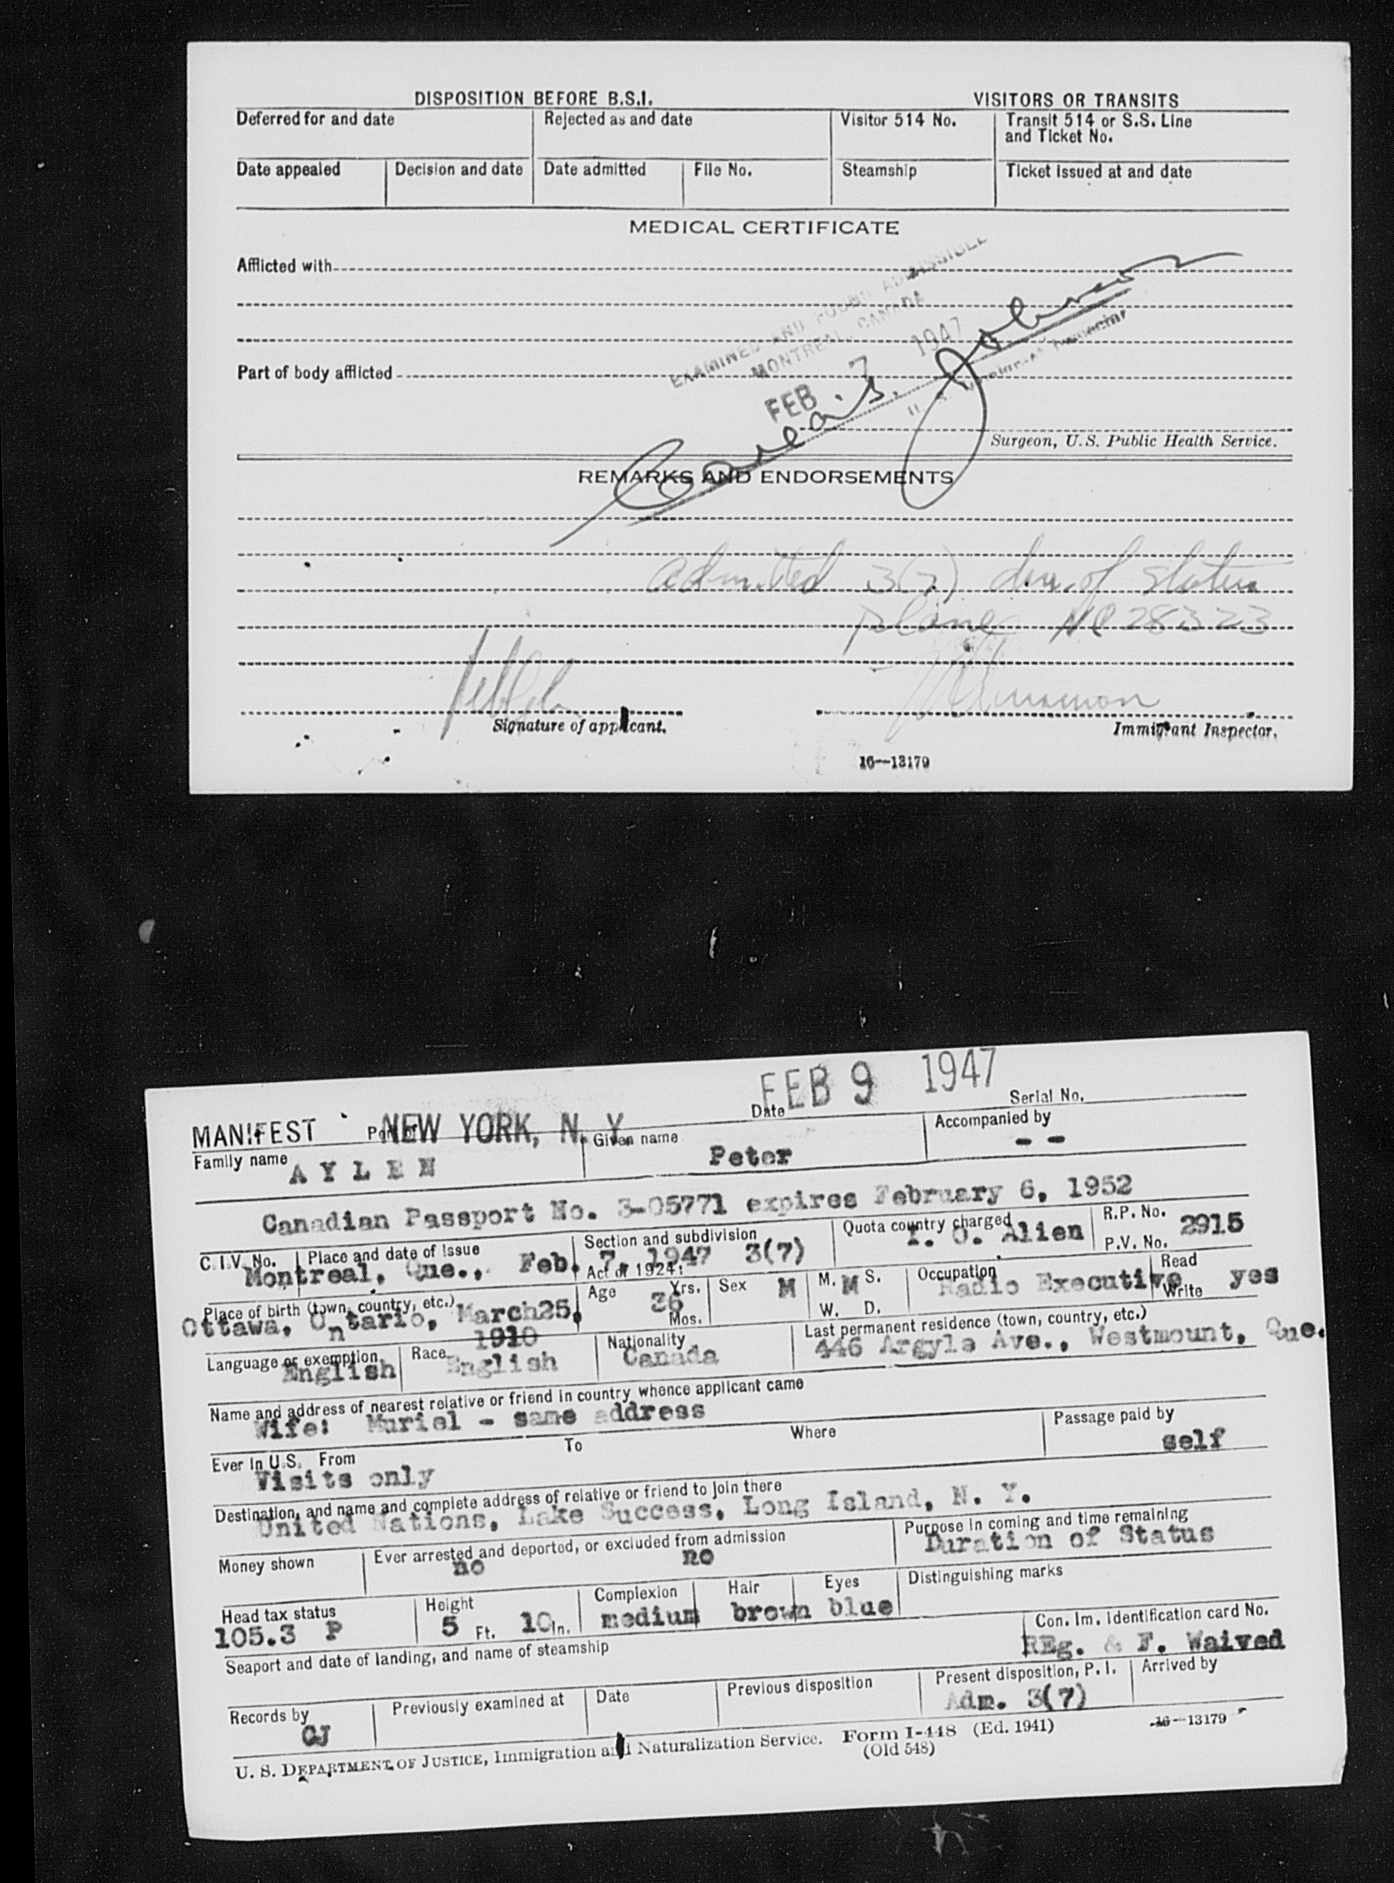 DISPOSITION BEFORE B.S.I. VISITORS OR TRANSITS
Deferred for and date Rejected as and date Visitor 514 No. Transit 514 or S.S. Line and Ticket No.
Date appealed Decision and date Date admitted File No. Steamship Ticket issued at and date
MEDICAL CERTIFICATE
Afflicted with
EXAMINED AND FOUND ADMISSIBLE
MONTREAL, CANADA
FEB 7 1947
Part of body afflicted
Johnson
Surgeon, U.S. Public Health Service.
REMARKS AND ENDORSEMENTS
admitted 3(7) dur. of status
plane NC 28323
Signature of applicant.
Immigrant Inspector.
16—13179
FEB 9 1947
MANIFEST Port of NEW YORK, N. Y. Date Serial No.
Family name AYLEN Given name Peter Accompanied by --
Canadian Passport No. 3-05771 expires February 6, 1952
C.I.V. No. Place and date of issue Montreal, Que., Feb. 7, 1947 Section and subdivision Act of 1924: 3(7) Quota country charged Alien R.P. No. P.V. No. 2915
Place of birth (town, country, etc.) Ottawa, Ontario, March25, 1910 Age 36 Yrs. Mos. Sex M M. S. W. D. M Occupation Radio Executive Read Write yes
Language or exemption English Race English Nationality Canada Last permanent residence (town, country, etc.) 446 Argyle Ave., Westmount, Que.
Name and address of nearest relative or friend in country whence applicant came
Wife: Muriel - same address
Ever in U.S. From To Where Passage paid by
Visits only self
Destination, and name and complete address of relative or friend to join there
United Nations, Lake Success, Long Island, N. Y.
Money shown Ever arrested and deported, or excluded from admission no no Purpose in coming and time remaining Duration of Status
Head tax status 105.3 P Height 5 Ft. 10 In. Complexion medium Hair brown Eyes blue Distinguishing marks
Seaport and date of landing, and name of steamship Con. Im. Identification card No. REg. & F. Waived
Records by CJ Previously examined at Date Previous disposition Present disposition, P.I. Adm. 3(7) Arrived by
U. S. DEPARTMENT OF JUSTICE, Immigration and Naturalization Service. Form I-448 (Ed. 1941) 16—13179
(Old 548)